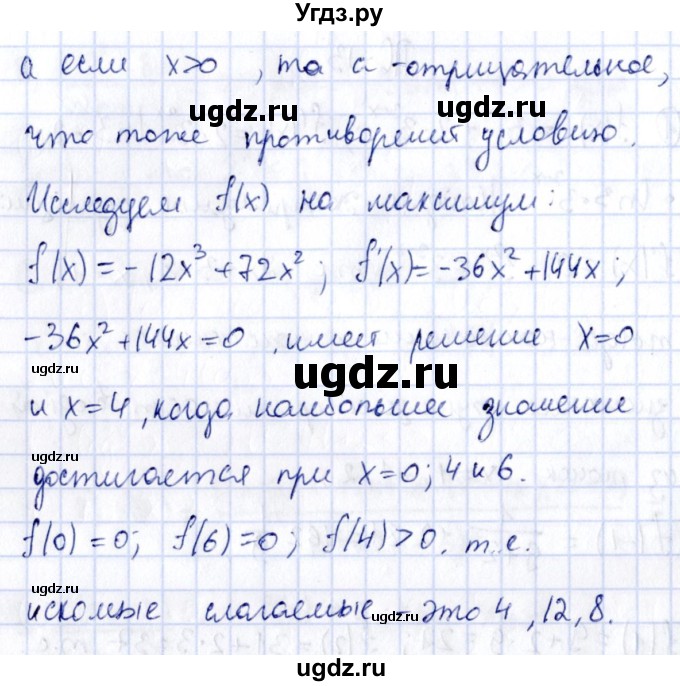 Угдз.ру
а если x>0, та а - отрицательное,
ugdz.ru ugdz.ru
что тоже противоречит условию.
Исследуем f(x) на максимум:
f(x) = -12x³ + 72x²; f'(x) = -36x² + 144x;
-36x² + 144x = 0. имеет решение x=0
ugdz.ru ugdz.ru
и x=4, когда наибольшее значение
ugdz.ru
достигается при x=0; 4 и 6.
f(0) = 0; f(6) = 0; f(4) > 0. т.е.
ugdz.ru
искомые слагаемые - это 4, 12, 8.
ugdz.ru
ugdz.ru